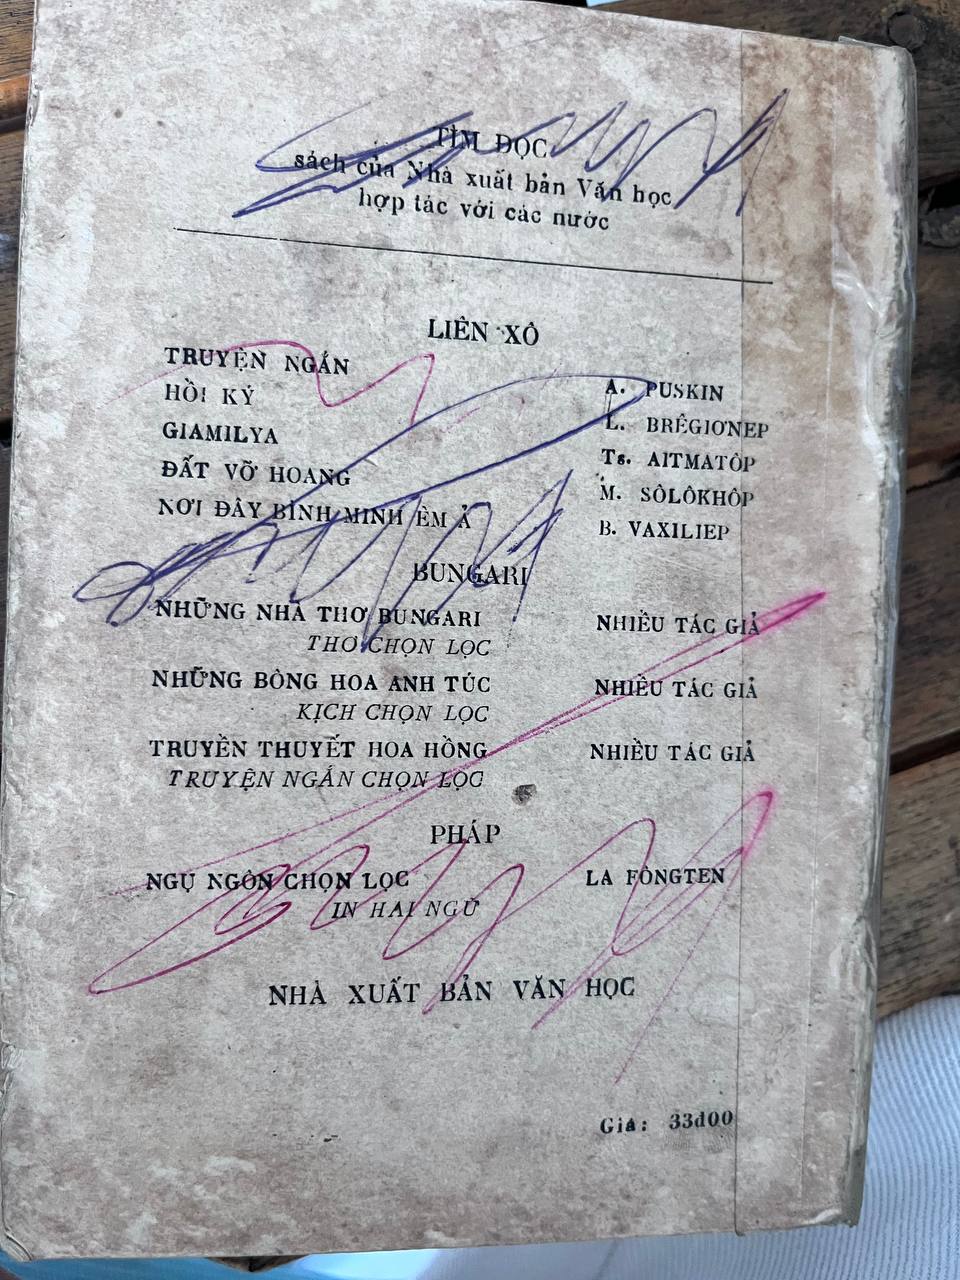 TÌM ĐỌC
sách của Nhà xuất bản Văn học
hợp tác với các nước
LIÊN XÔ
TRUYỆN NGẮN A. PUSKIN
HỒI KÝ L. BRÊGIƠNEP
GIAMILYA Ts. AITMATÔP
ĐẤT VỠ HOANG M. SÔLÔKHÔP
NƠI ĐÂY BÌNH MINH ÊM Ả B. VAXILIEP
BUNGARI
NHỮNG NHÀ THƠ BUNGARI NHIỀU TÁC GIẢ
THƠ CHỌN LỌC
NHỮNG BÔNG HOA ANH TÚC NHIỀU TÁC GIẢ
KỊCH CHỌN LỌC
TRUYỀN THUYẾT HOA HỒNG NHIỀU TÁC GIẢ
TRUYỆN NGẮN CHỌN LỌC
PHÁP
NGỤ NGÔN CHỌN LỌC LA FÔNGTEN
IN HAI NGỮ
NHÀ XUẤT BẢN VĂN HỌC
Giá: 33đ00